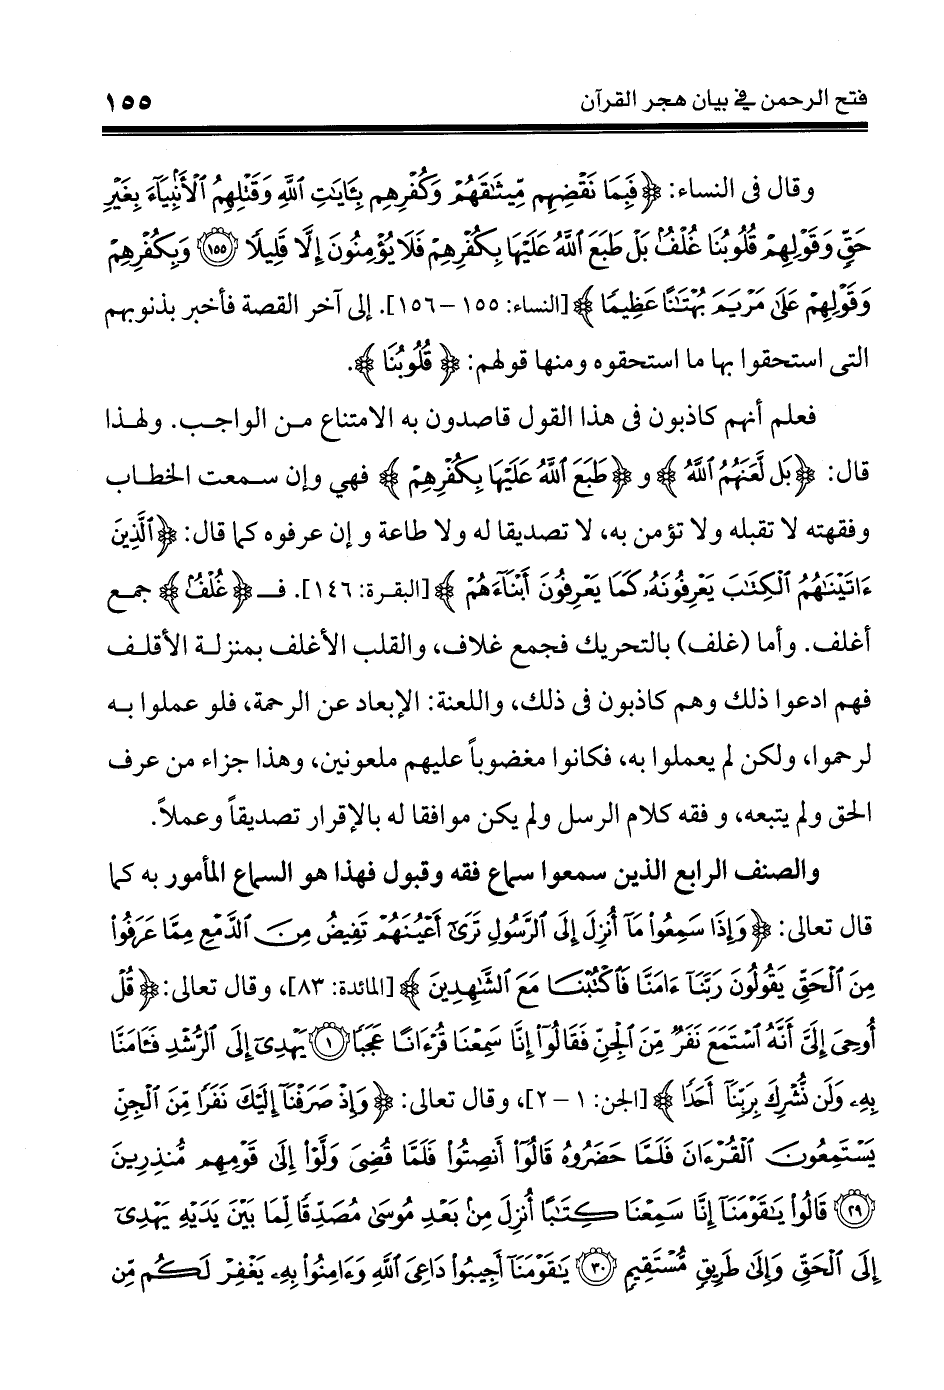 فتح الرحمن في بيان هجر القرآن ١٥٥
وقال فى النساء: ﴿فَبِمَا نَقْضِهِم مِّيثَٰقَهُمْ وَكُفْرِهِم بِـَٔايَٰتِ ٱللَّهِ وَقَتْلِهِمُ ٱلْأَنۢبِيَآءَ بِغَيْرِ
حَقٍّ وَقَوْلِهِمْ قُلُوبُنَا غُلْفٌۢ بَلْ طَبَعَ ٱللَّهُ عَلَيْهَا بِكُفْرِهِمْ فَلَا يُؤْمِنُونَ إِلَّا قَلِيلًا ﴿١٥٥﴾ وَبِكُفْرِهِمْ
وَقَوْلِهِمْ عَلَىٰ مَرْيَمَ بُهْتَٰنًا عَظِيمًا﴾ [النساء: ١٥٥ - ١٥٦]. إلى آخر القصة فأخبر بذنوبهم
التى استحقوا بها ما استحقوه ومنها قولهم: ﴿ قُلُوبُنَا ﴾.
فعلم أنهم كاذبون فى هذا القول قاصدون به الامتناع من الواجب. ولهذا
قال: ﴿بَل لَّعَنَهُمُ ٱللَّهُ﴾ و ﴿طَبَعَ ٱللَّهُ عَلَيْهَا بِكُفْرِهِمْ﴾ فهي وإن سمعت الخطاب
وفقهته لا تقبله ولا تؤمن به، لا تصديقا له ولا طاعة و إن عرفوه كما قال: ﴿ٱلَّذِينَ
ءَاتَيْنَٰهُمُ ٱلْكِتَٰبَ يَعْرِفُونَهُۥ كَمَا يَعْرِفُونَ أَبْنَآءَهُمْ﴾ [البقرة: ١٤٦]. فـ ﴿غُلْفٌ﴾ جمع
أغلف. وأما (غلف) بالتحريك فجمع غلاف، والقلب الأغلف بمنزلة الأقلف
فهم ادعوا ذلك وهم كاذبون فى ذلك، واللعنة: الإبعاد عن الرحمة، فلو عملوا به
لرحموا، ولكن لم يعملوا به، فكانوا مغضوباً عليهم ملعونين، وهذا جزاء من عرف
الحق ولم يتبعه، و فقه كلام الرسل ولم يكن موافقا له بالإقرار تصديقاً وعملاً.
والصنف الرابع الذين سمعوا سماع فقه وقبول فهذا هو السماع المأمور به كما
قال تعالى: ﴿وَإِذَا سَمِعُوا۟ مَآ أُنزِلَ إِلَى ٱلرَّسُولِ تَرَىٰٓ أَعْيُنَهُمْ تَفِيضُ مِنَ ٱلدَّمْعِ مِمَّا عَرَفُوا۟
مِنَ ٱلْحَقِّ يَقُولُونَ رَبَّنَآ ءَامَنَّا فَٱكْتُبْنَا مَعَ ٱلشَّٰهِدِينَ﴾ [المائدة: ٨٣]، وقال تعالى: ﴿قُلْ
أُوحِىَ إِلَىَّ أَنَّهُ ٱسْتَمَعَ نَفَرٌ مِّنَ ٱلْجِنِّ فَقَالُوٓا۟ إِنَّا سَمِعْنَا قُرْءَانًا عَجَبًا ﴿١﴾ يَهْدِىٓ إِلَى ٱلرُّشْدِ فَـَٔامَنَّا
بِهِۦ وَلَن نُّشْرِكَ بِرَبِّنَآ أَحَدًا﴾ [الجن: ١ - ٢]، وقال تعالى: ﴿وَإِذْ صَرَفْنَآ إِلَيْكَ نَفَرًا مِّنَ ٱلْجِنِّ
يَسْتَمِعُونَ ٱلْقُرْءَانَ فَلَمَّا حَضَرُوهُ قَالُوٓا۟ أَنصِتُوا۟ فَلَمَّا قُضِىَ وَلَّوْا۟ إِلَىٰ قَوْمِهِم مُّنذِرِينَ
﴿٢٩﴾ قَالُوا۟ يَٰقَوْمَنَآ إِنَّا سَمِعْنَا كِتَٰبًا أُنزِلَ مِنۢ بَعْدِ مُوسَىٰ مُصَدِّقًا لِّمَا بَيْنَ يَدَيْهِ يَهْدِىٓ
إِلَى ٱلْحَقِّ وَإِلَىٰ طَرِيقٍ مُّسْتَقِيمٍ ﴿٣٠﴾ يَٰقَوْمَنَآ أَجِيبُوا۟ دَاعِىَ ٱللَّهِ وَءَامِنُوا۟ بِهِۦ يَغْفِرْ لَكُم مِّن